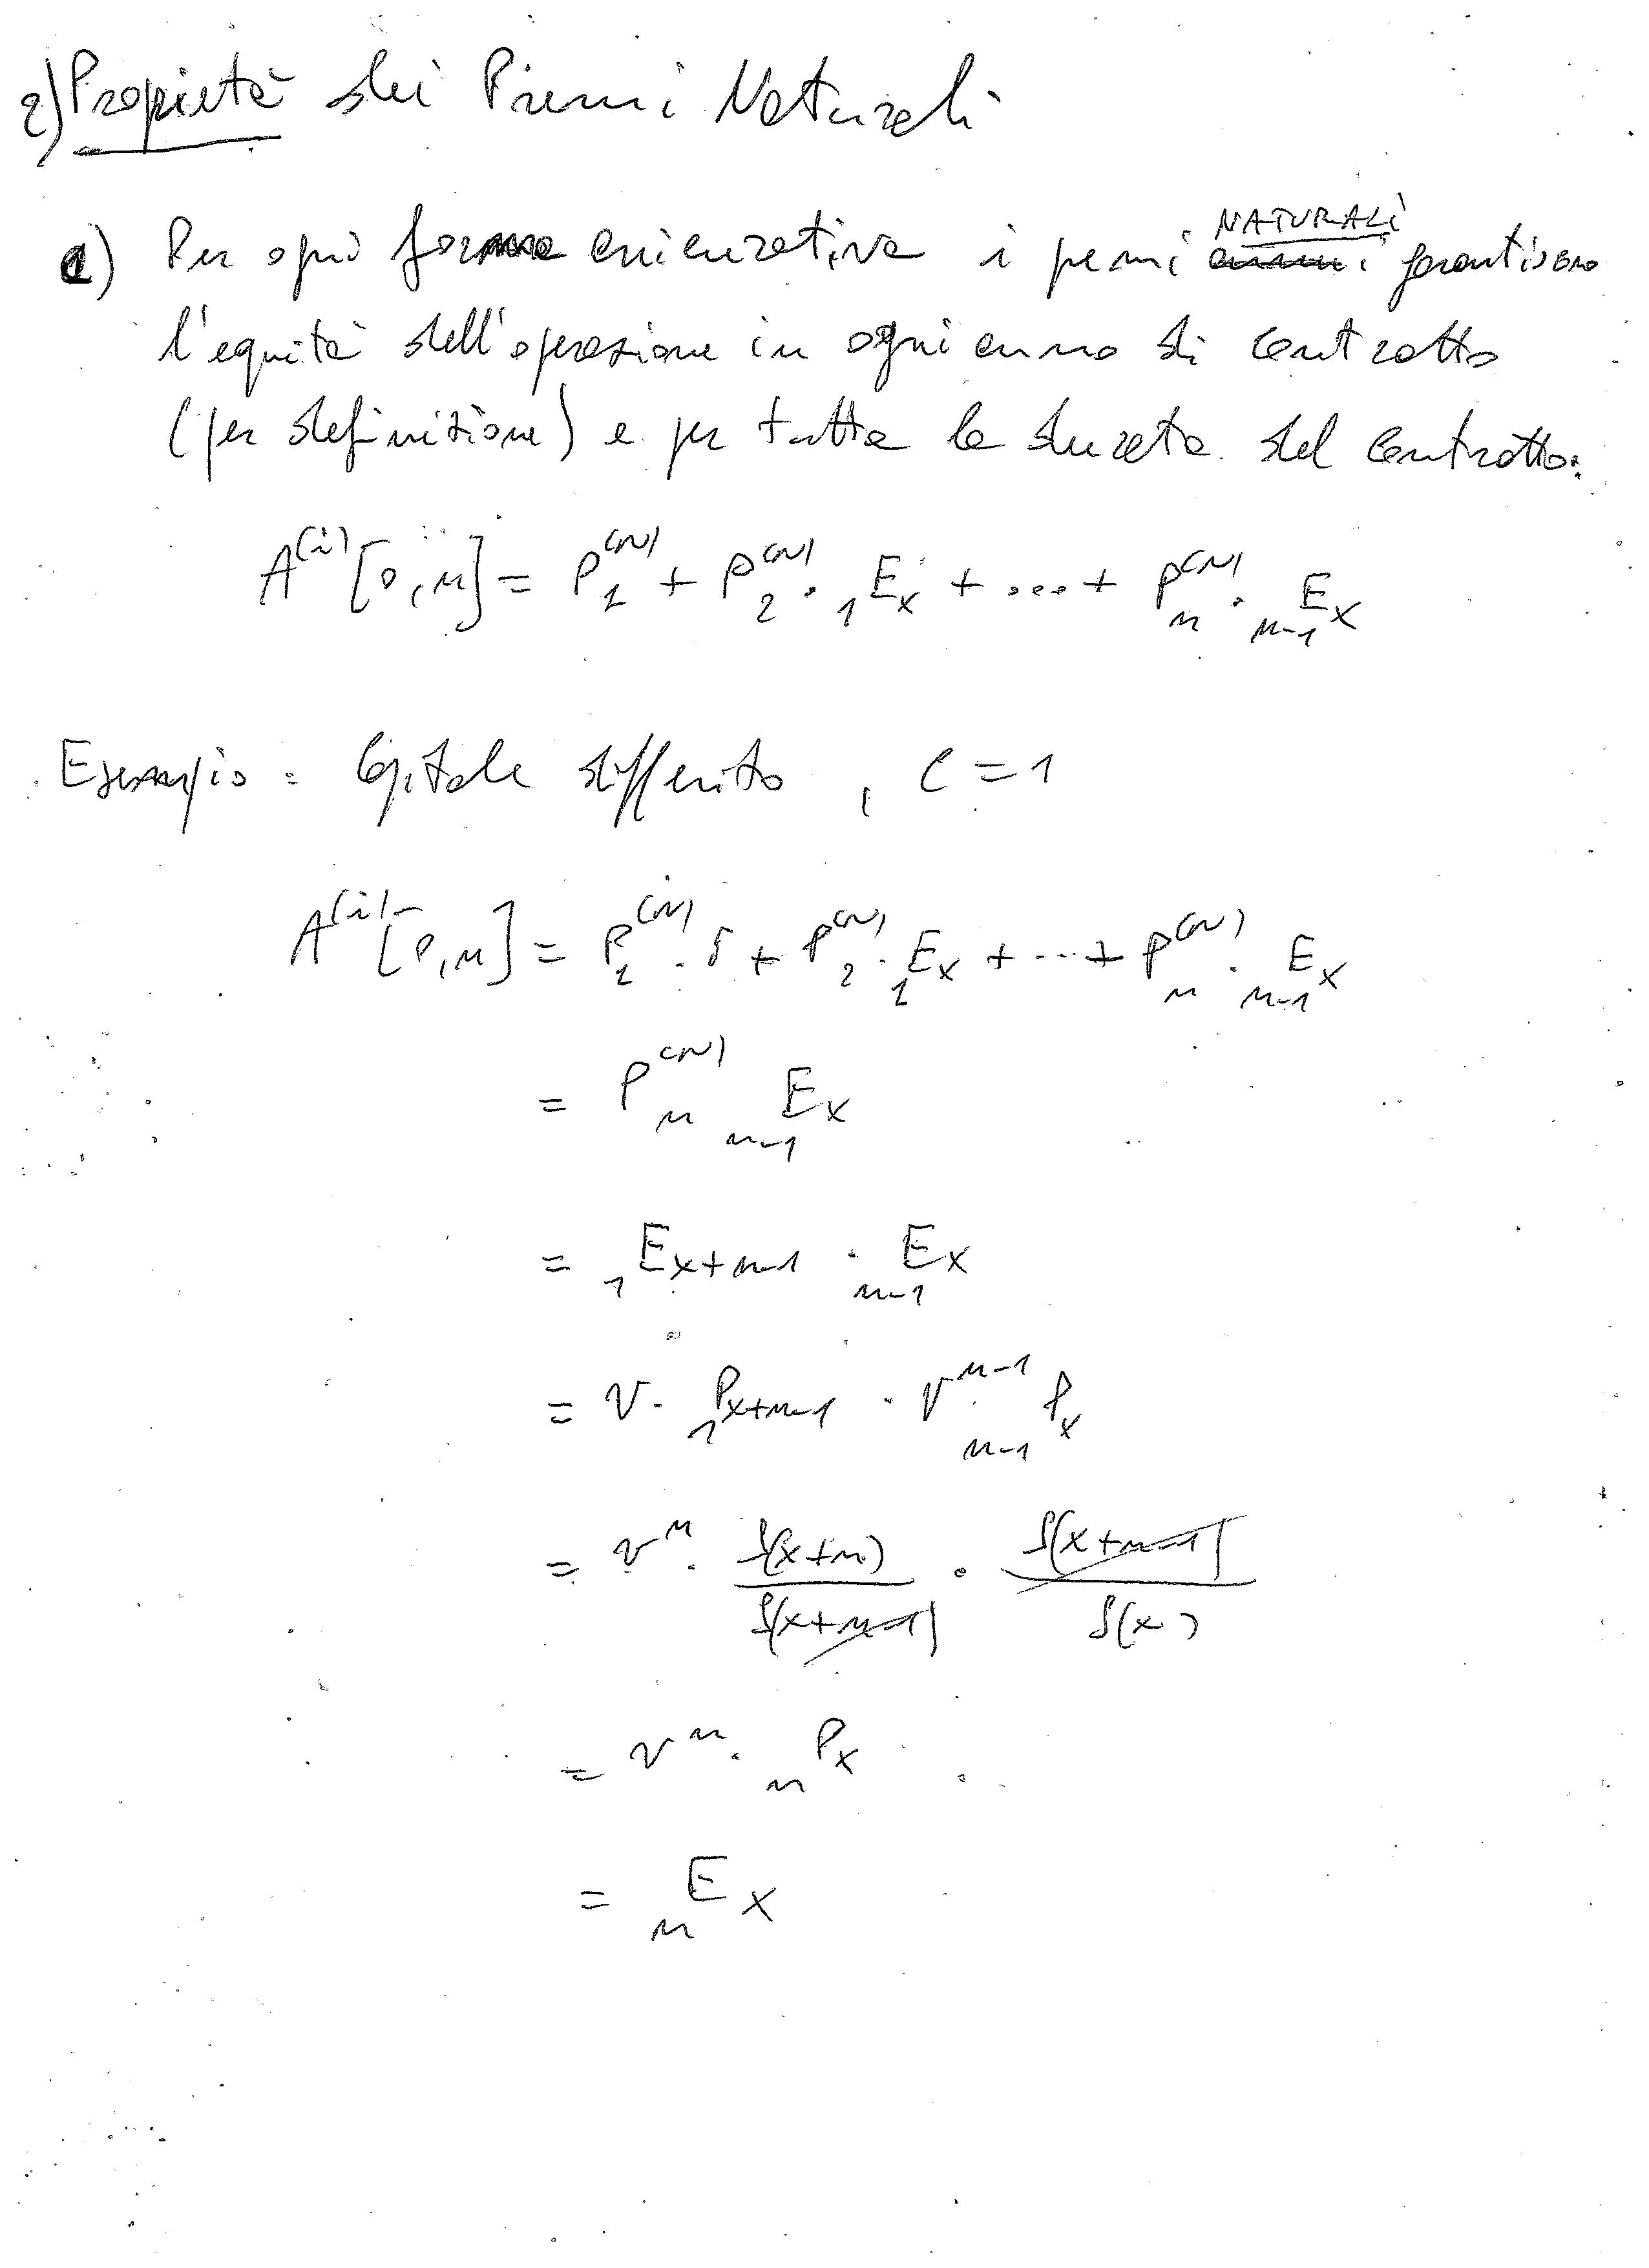 2) Propietà dei Premi Naturali
1) Per ogni forma assicurativa i premi NATURALI garantiscono
l'equità dell'operazione in ogni anno di contratto
(per definizione) e per tutta la durata del contratto:
A^(i) [0,n] = P_1^(N) + P_2^(N) · ₁E_x + ... + P_n^(N) · _{n-1}E_x
Esempio: Capitale differito, C = 1
A^(i) [0,n] = P_1^(N) · + P_2^(N) · ₁E_x + ... + P_n^(N) · _{n-1}E_x
= P_n^(N) _{n-1}E_x
= ₁E_{x+n-1} · _{n-1}E_x
= v · ₁p_{x+n-1} · v^{n-1} _{n-1}p_x
= v^n · S(x+n)/S(x+n-1) · S(x+n-1)/S(x)
= v^n · _n p_x
= _n E_x